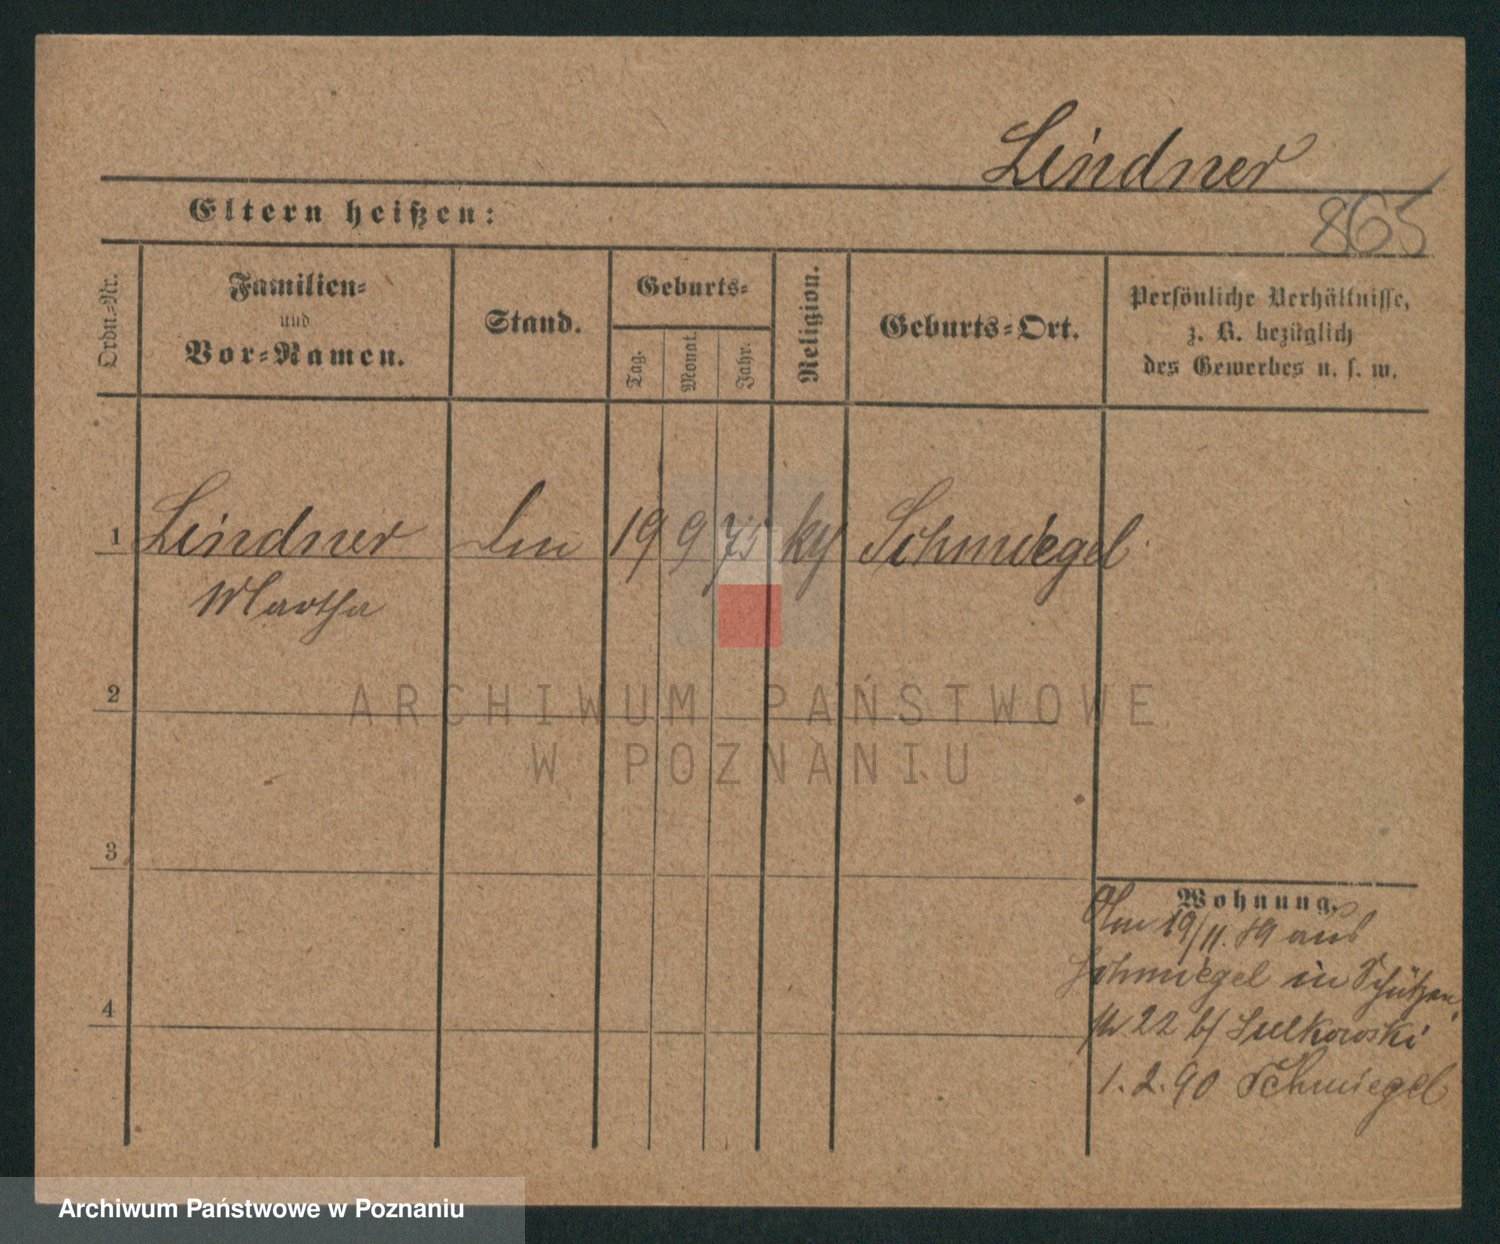 Lindner
865
Eltern heißen:
Ordn.-Nr.
Familien-
und
Vor-Namen.
Stand.
Geburts-
Tag.
Monat.
Jahr.
Religion.
Geburts-Ort.
Persönliche Verhältnisse,
z. B. bezüglich
des Gewerbes u. s. w.
1 Lindner 19 9 75 Schmiegel
Martha
2
3
4
Wohnung.
19/11. 89 aus
Schmiegel in Schützen
22 b/ Sulkowski
1. 2. 90 Schmiegel
ARCHIWUM PAŃSTWOWE
W POZNANIU
Archiwum Państwowe w Poznaniu